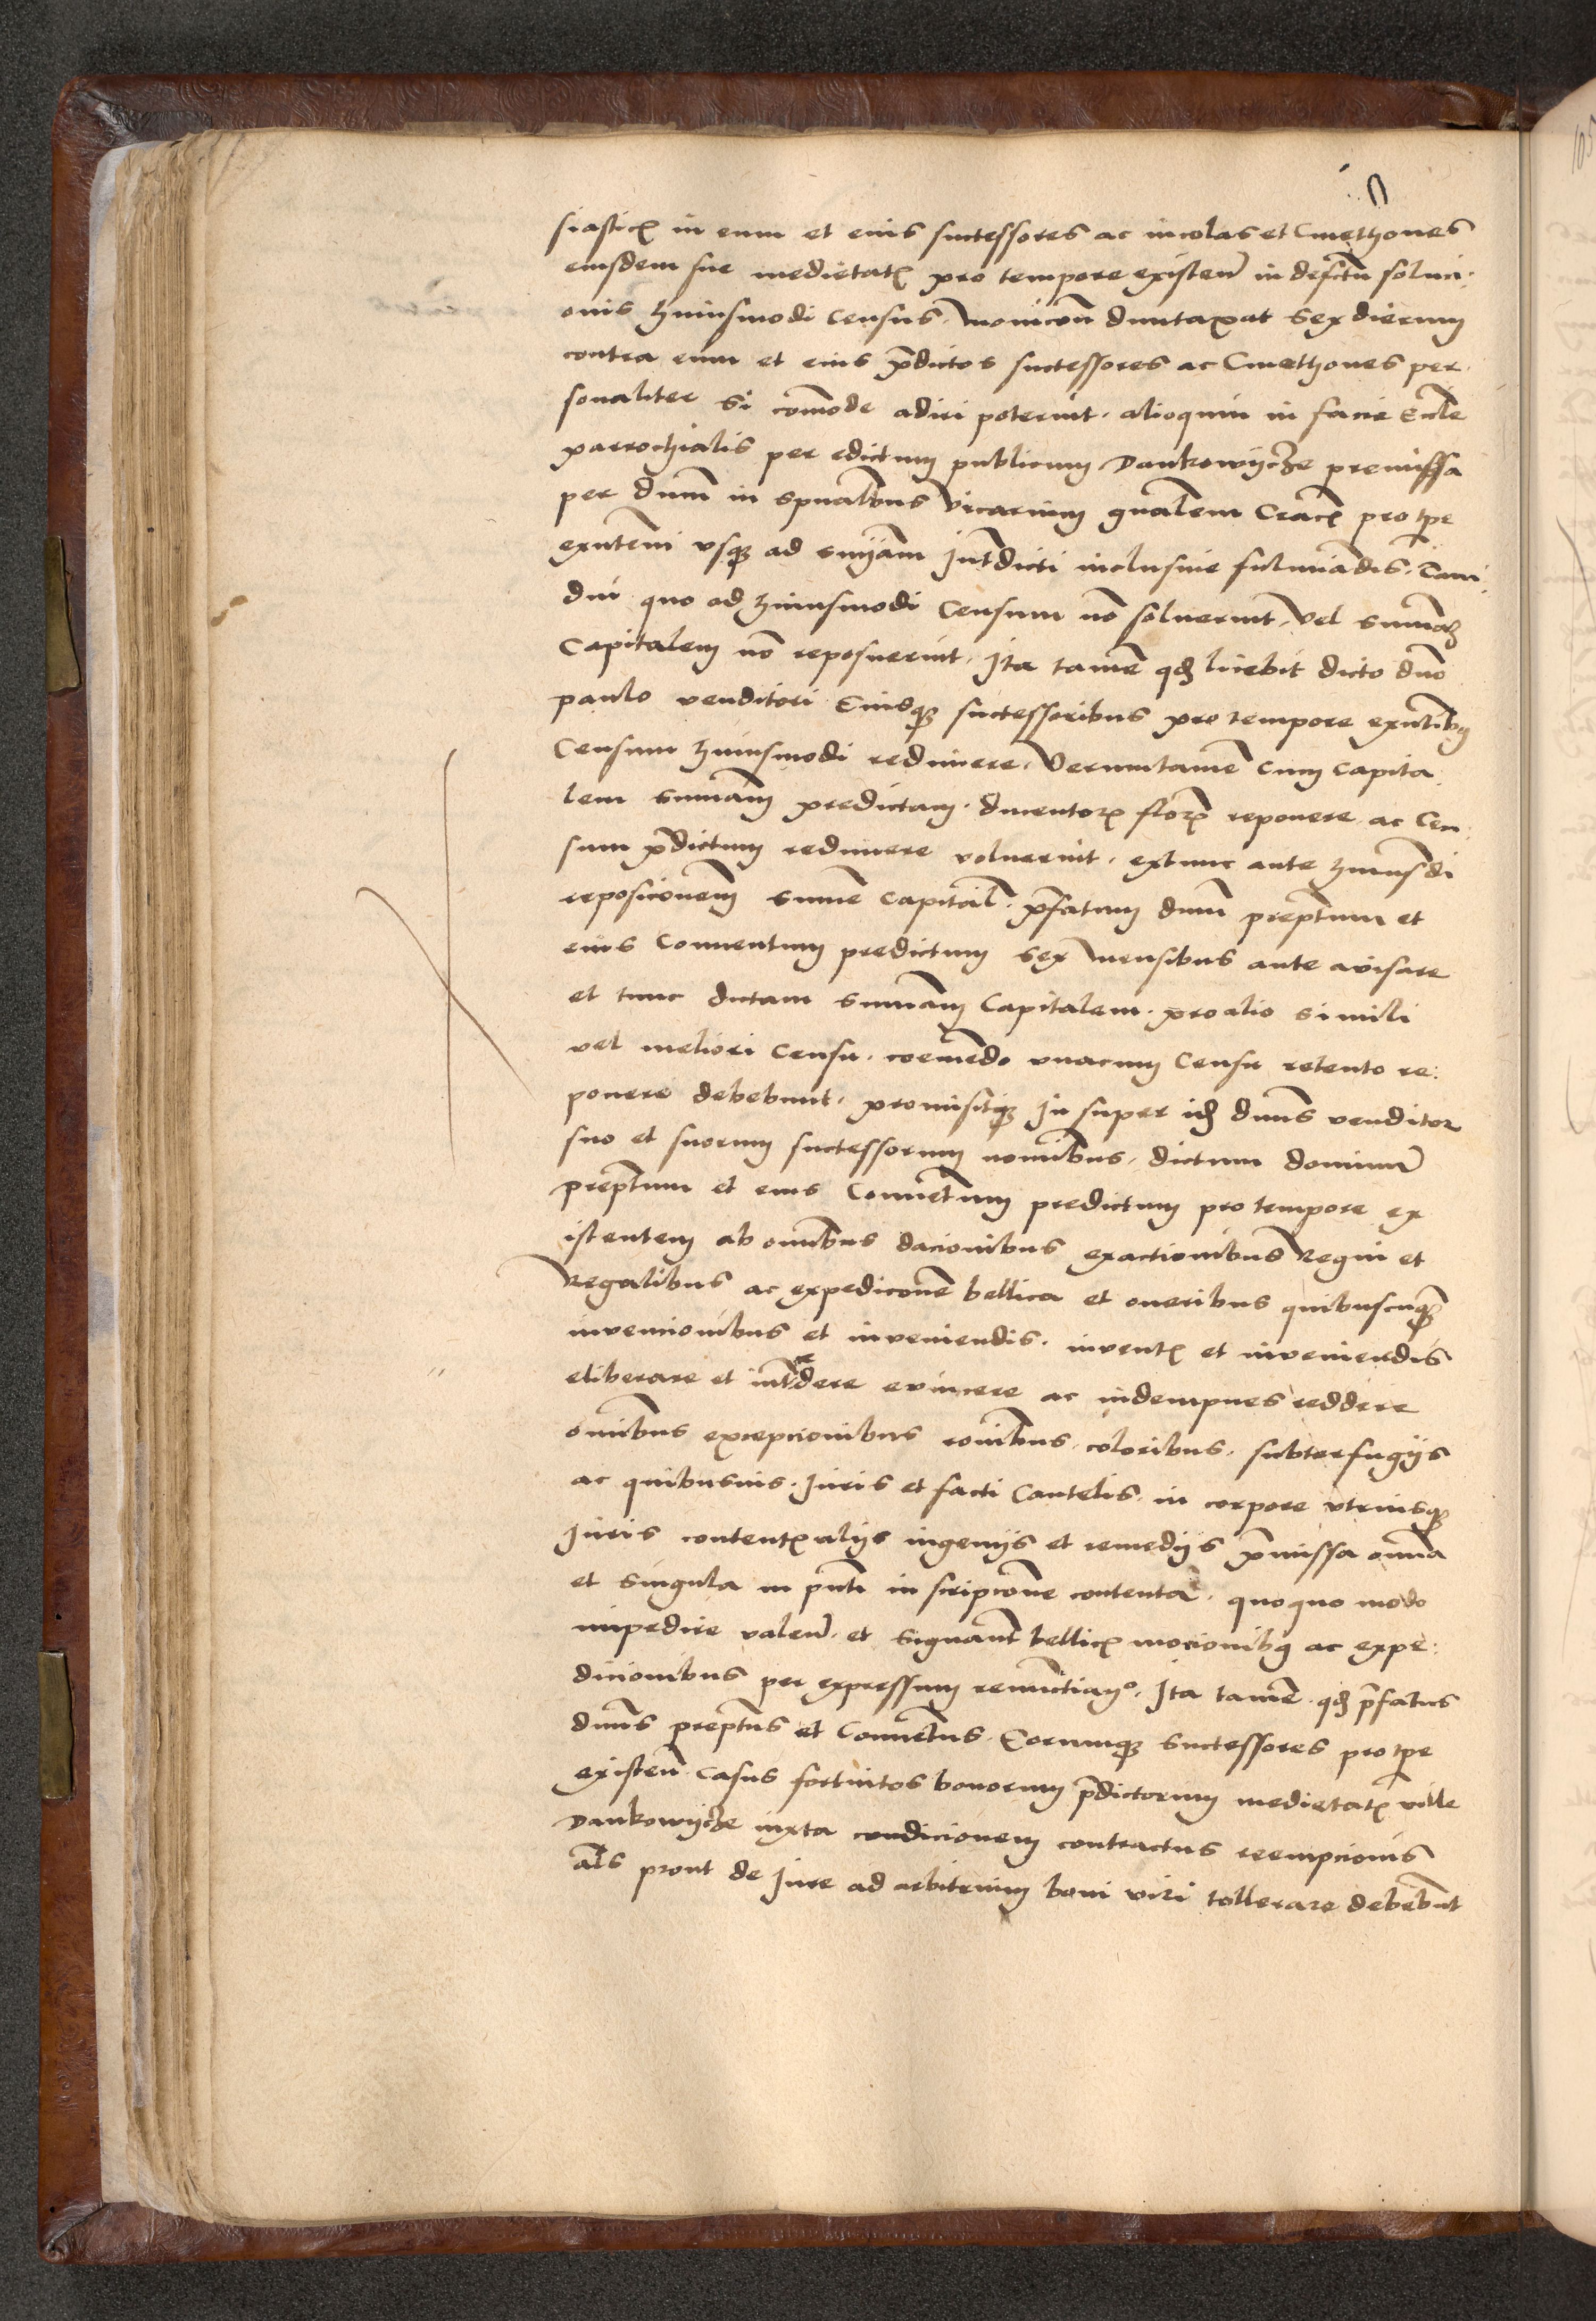 siasticꝭ in eum et eius successores ac incolas et Cmethones
eiusdem sue medietatꝭ pro tempore existen̄ in defectū soluci-
onis huiusmodi Census. monicōn dumtaxat sex dierum
contra eum et eius p̄dictos successores ac Cmethones per
sonaliter si com̄ode adiri poterint. alioquin in facie Eccle
parrochialis per edictum publicum Dankowycze premissa
per dnūm in spūalibus vicarium gn̄alem Cracꝭ pro tp̄e
exn̄tem vsqꝫ ad sn̄iam Int̄dicti inclusiue fulmīādis. Tam
diu quo ad huiusmodi Censum nō soluerint. vel sum̄aꝫ
Capitalem nō reposuerint. Ita tamē qđ licebit dicto dn̄o
paulo venditori Eiusqꝫ successoribus pro tempore exn̄tibꝰ
Censum huiusmodi redimere. Verumtamē cum capita
lem sum̄am predictam. ducentorꝭ florꝭ reponere ac Cen
sum p̄dictum redimere voluerint. extunc ante huiusm̄di
reposicionem sum̄e Capital̄. p̄fatum dnūm prep̄tum et
eius Conuentum predictum sex mensibus ante avisare
et tunc dictam sum̄am Capitalem. pro alio simili
vel meliori Censu. coemēdo vnacum Censu retento re:
ponere debebunt. promisitqꝫ In super idꝫ dn̄us venditor
suo et suorum successorum nom̄ibus. dictum dominū
prep̄tum et eius Conuētum predictum pro tempore ex
istentem ab om̄ibus dacionibus exactionibus Regni et
Regalibus ac expedicōne bellica et oneribus quibuscūqꝫ
invencionibus et inveniendis. inventꝭ et inveniendis
eliberare et int̄cedere evincere ac indempnes reddere
om̄ibus excepcionibus rōnibus. coloribus. subterfugijs
ac quibusuis. Iuris et facti Cautelis. in corpore vtriusqꝫ
Iuris contentꝭ alijs ingenijs et remedijs p̄missa om̄ia
et singula in p̄nti in scripcōne contenta. quoquo modo
impedire valen̄. et signan̄t bellicꝭ mocionibꝰ ac expe:
dicionibus per expressum renūctian̄º. Ita tamē. qđ p̄fatus
dn̄us prep̄tus et Conuētus. Eorumqꝫ successores pro tp̄e
existen̄. Casus fortuitos bonorum p̄dictorum medietatꝭ ville
Dankowycze iuxta condicionem contractus reempcionis
al̄s prout de Iure ad arbitrium boni viri tollerare debebūt